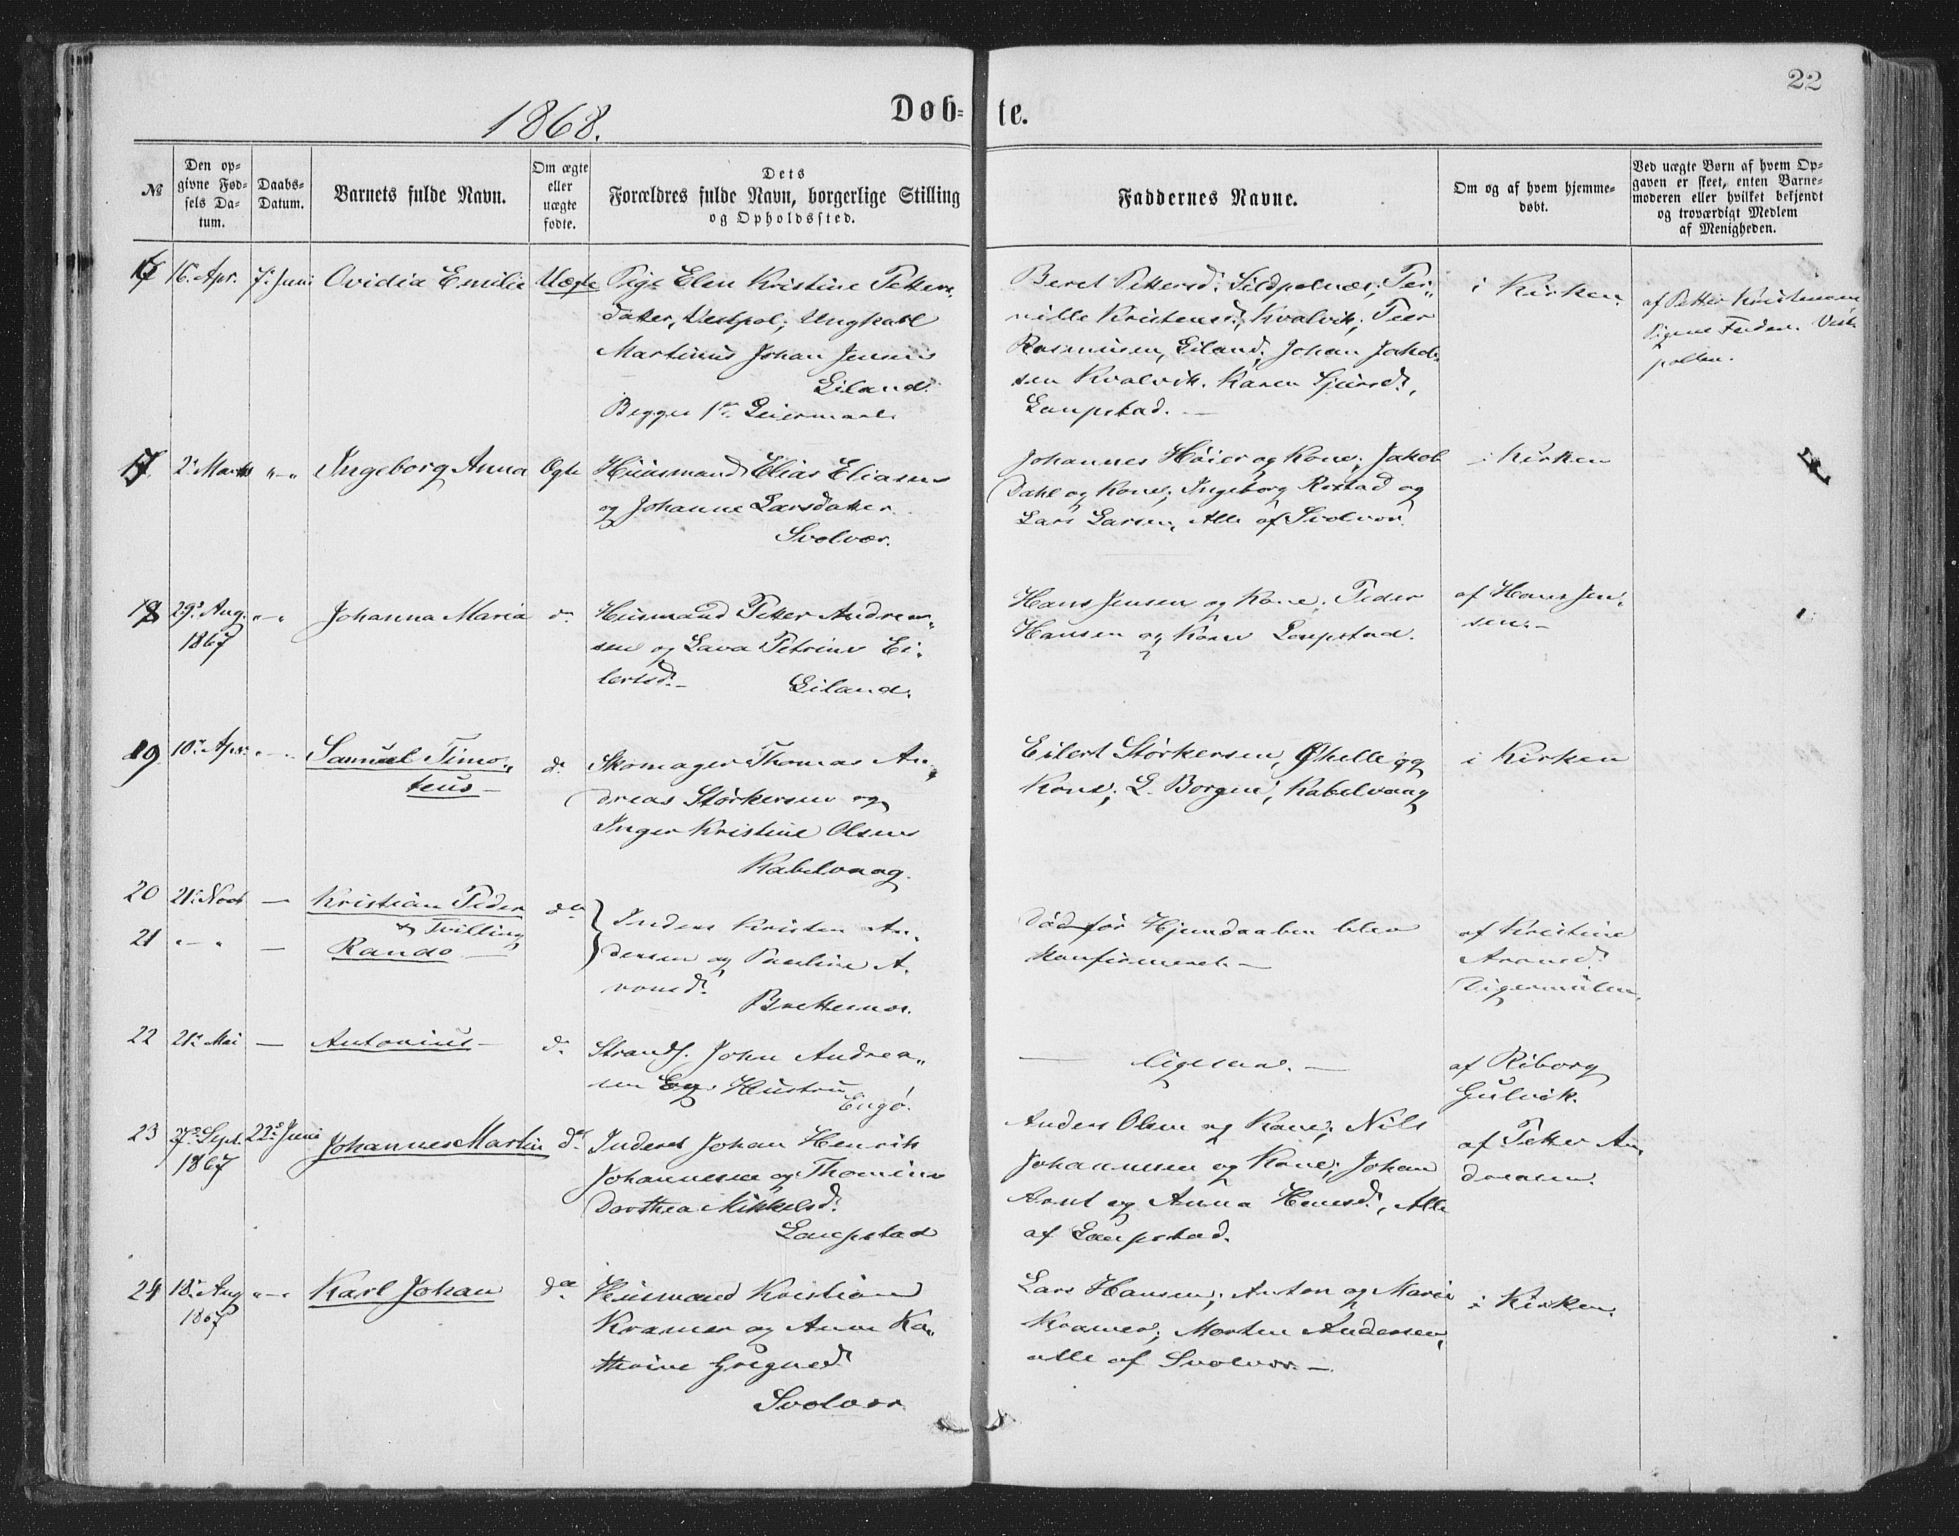 22
1868.
Døb-
te.
№
Den op-
givne Fød-
sels Da-
tum.
Daabs-
Datum.
Barnets fulde Navn.
Om ægte
eller
uægte
fødte.
Dets
Forældres fulde Navn, borgerlige Stilling
og Opholdssted.
Faddernes Navne.
Om og af hvem hjemme-
døbt.
Ved uægte Børn af hvem Op-
gaven er skeet, enten Barne-
moderen eller hvilket bekjendt
og troværdigt Medlem
af Menigheden.
16. Apr. 7. Juni Ovidia Emilie Uægte Pige Elen Kristine Petters-
datter, Vestpol; Ungkarl
Martinus Johan Jensen
Eiland.
Begges 1ste Leiermaal.
Beret Pettersd. Sildpolnes; Per-
nille Kristensd. Kvalvik; Peer
Rasmusen, Eiland; Johan Jakob-
sen Kvalvik. Karen Sjursd.,
Laupstad.
i Kirken
af Petter
Pigens Fader. Vest-
pollen.
17. 2. Marts "-" Ingeborg Anna Ægte Huusmand Elias Eliasen
og Johanne Larsdatter
Svolvær.
Johannes Høier og Kone; Jakob
Dahl og Kone; Ingeborg og
Lars Larsen, Alle af Svolvær.
i Kirken
18 29. Aug. "-" Johanna Maria do Huusmand Petter Andrea-
1867
sen og Lava Petrine Ei-
lertsd. Eiland.
Hans Jensen og Kone; Peder
Hansen og Kone Laupstad.
af Hans Jen-
sen.
19. 10. Apr. "-" Samuel Timo-
teus
do Skomager Thomas An-
dreas Størkersen og
Inger Kristine Olsen
Kabelvaag.
Eilert Størkersen, Ghelle og
Kone; L. Borgen, Kabelvaag
i Kirken
20 21. Novb — Kristian Peder do
21 "-" — Tvilling
Rando
Inders Kristen An-
dersen og Pauline A-
ronsd.
Brettesnes.
Død før Hjemdaaben blev
konfirmeret.
af Kristine
Digermulen.
22 21. Mai — Antonius do Strands. John Andrea-
sen Hustru
Engø.
— ligesaa. —
af Riborg
Gulvik.
23 27. Sept. 22. Juni Johannes Martin do Inderst Johan Henrik
1867
Johannesen og Thomine
Dorthea Mikkelsd.
Laupstad
Anders Olsen og Kone; Nils
Johannesen og Kone; Johan
Arnt og Anna Hansd., Alle
af Laupstad.
af Petter An-
dreasen.
24 18. Aug "-" Karl Johan do Huusmand Kristian
1867
Kramer og Anne Ka-
thrine
Svolvær
Lars Hansen; Anton og Marie
Kramer; Morten Andersen,
alle af Svolvær.
i Kirken.